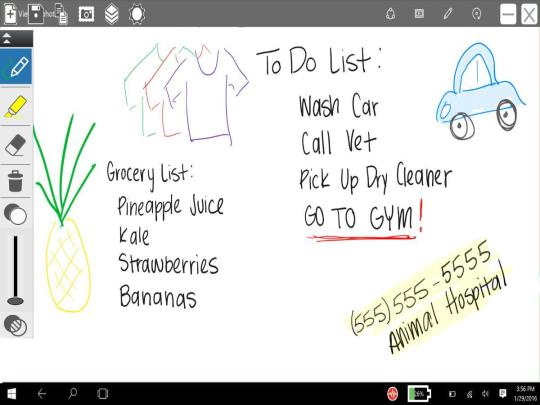 To Do List:
Wash Car
Call Vet
Pick Up Dry Cleaner
GO TO GYM!
Grocery List:
Pineapple Juice
Kale
Strawberries
Bananas
(555)555-5555
Animal Hospital
3:56 PM
1/29/2016